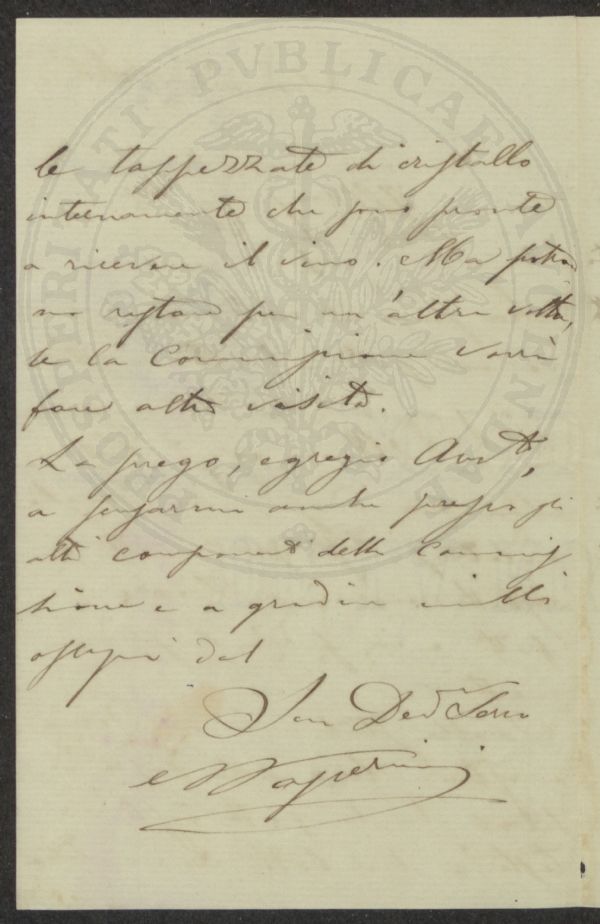 PROSPERITATI PVBLICAE
le tappezzate di cristallo
internamente che sono pronte
a ricevere il vino. Ma potran
no restare per un'altra volta,
se la Commissione vorrà
fare altra visita.
La prego, egregio
a scusarmi anche presso gli
altri componenti della Commis
sione e a gradire mille
ossequi dal
Suo Dev. Servo